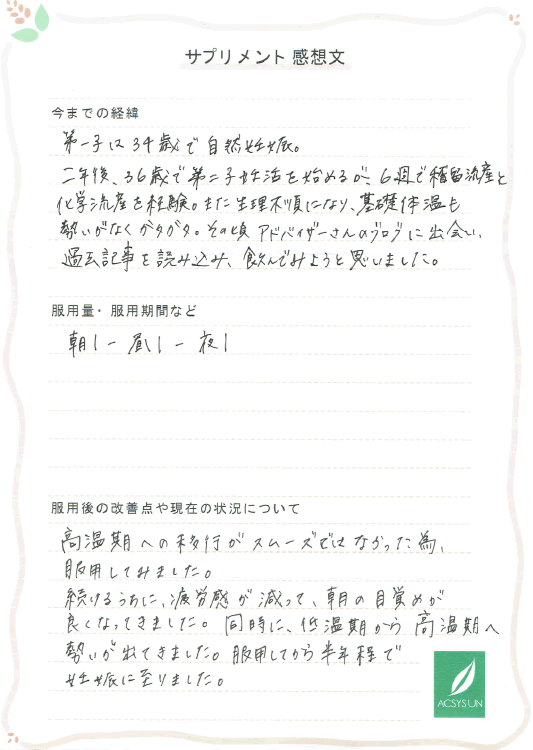 サプリメント 感想文
今までの経緯
第一子は34歳で自然妊娠。
二年後、36歳で第二子妊活を始めるが、6週で稽留流産と
化学流産を経験。また生理不順になり、基礎体温も
勢いがなくガタガタ。その頃アドバイザーさんのブログに出会い、
過去記事を読み込み、飲んでみようと思いました。
服用量・服用期間など
朝1－昼1－夜1
服用後の改善点や現在の状況について
高温期への移行がスムーズではなかった為、
服用してみました。
続けるうちに、疲労感が減って、朝の目覚めが
良くなってきました。同時に、低温期から高温期へ
勢いが出てきました。服用してから半年程で
妊娠に至りました。
ACSYSUN